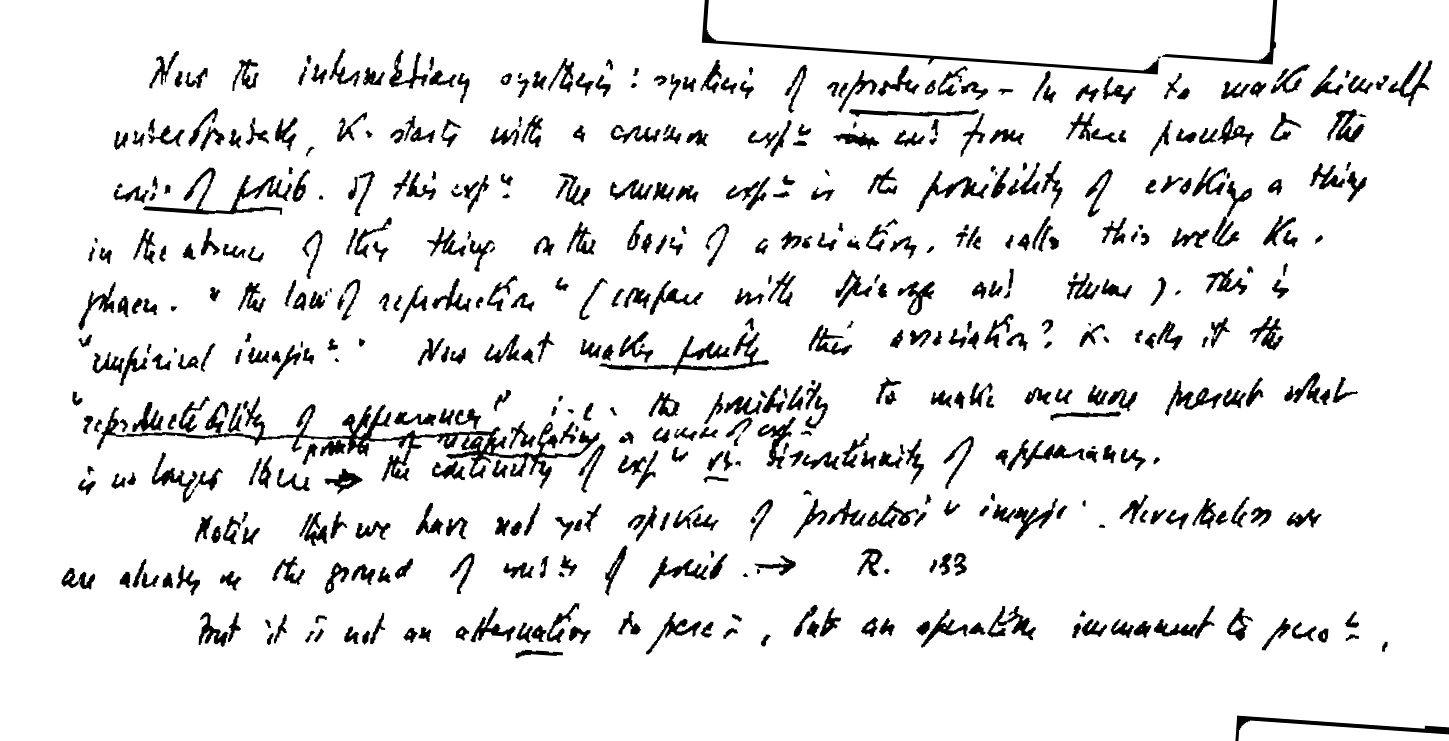 Now the intermediary synthesis : synthesis of reproduction – In order to make himself
understandable, K. starts with a common expce and from there proceeds to the
cond. of possib. of this expce The common expce is the possibility of evoking a thing
in the absence of this thing on the basis of association. He calls this well Kn.
phaen. "the law of reproduction" (compare with Spinoza and Hume). This is
"empirical imaginn." Now what makes possible this association? K. calls it the
"reproductibility of appearances" i.e. the possibility to make once more present what
possib of recapitulating a course of expce
is no longer there → the continuity of expce vs. discontinuity of appearances.
Notice that we have not yet spoken of "productive imagin". Nevertheless we
are already on the ground of condns of possib. → R. 133
But it is not an alternative to percn, but an operation immanent to percn.